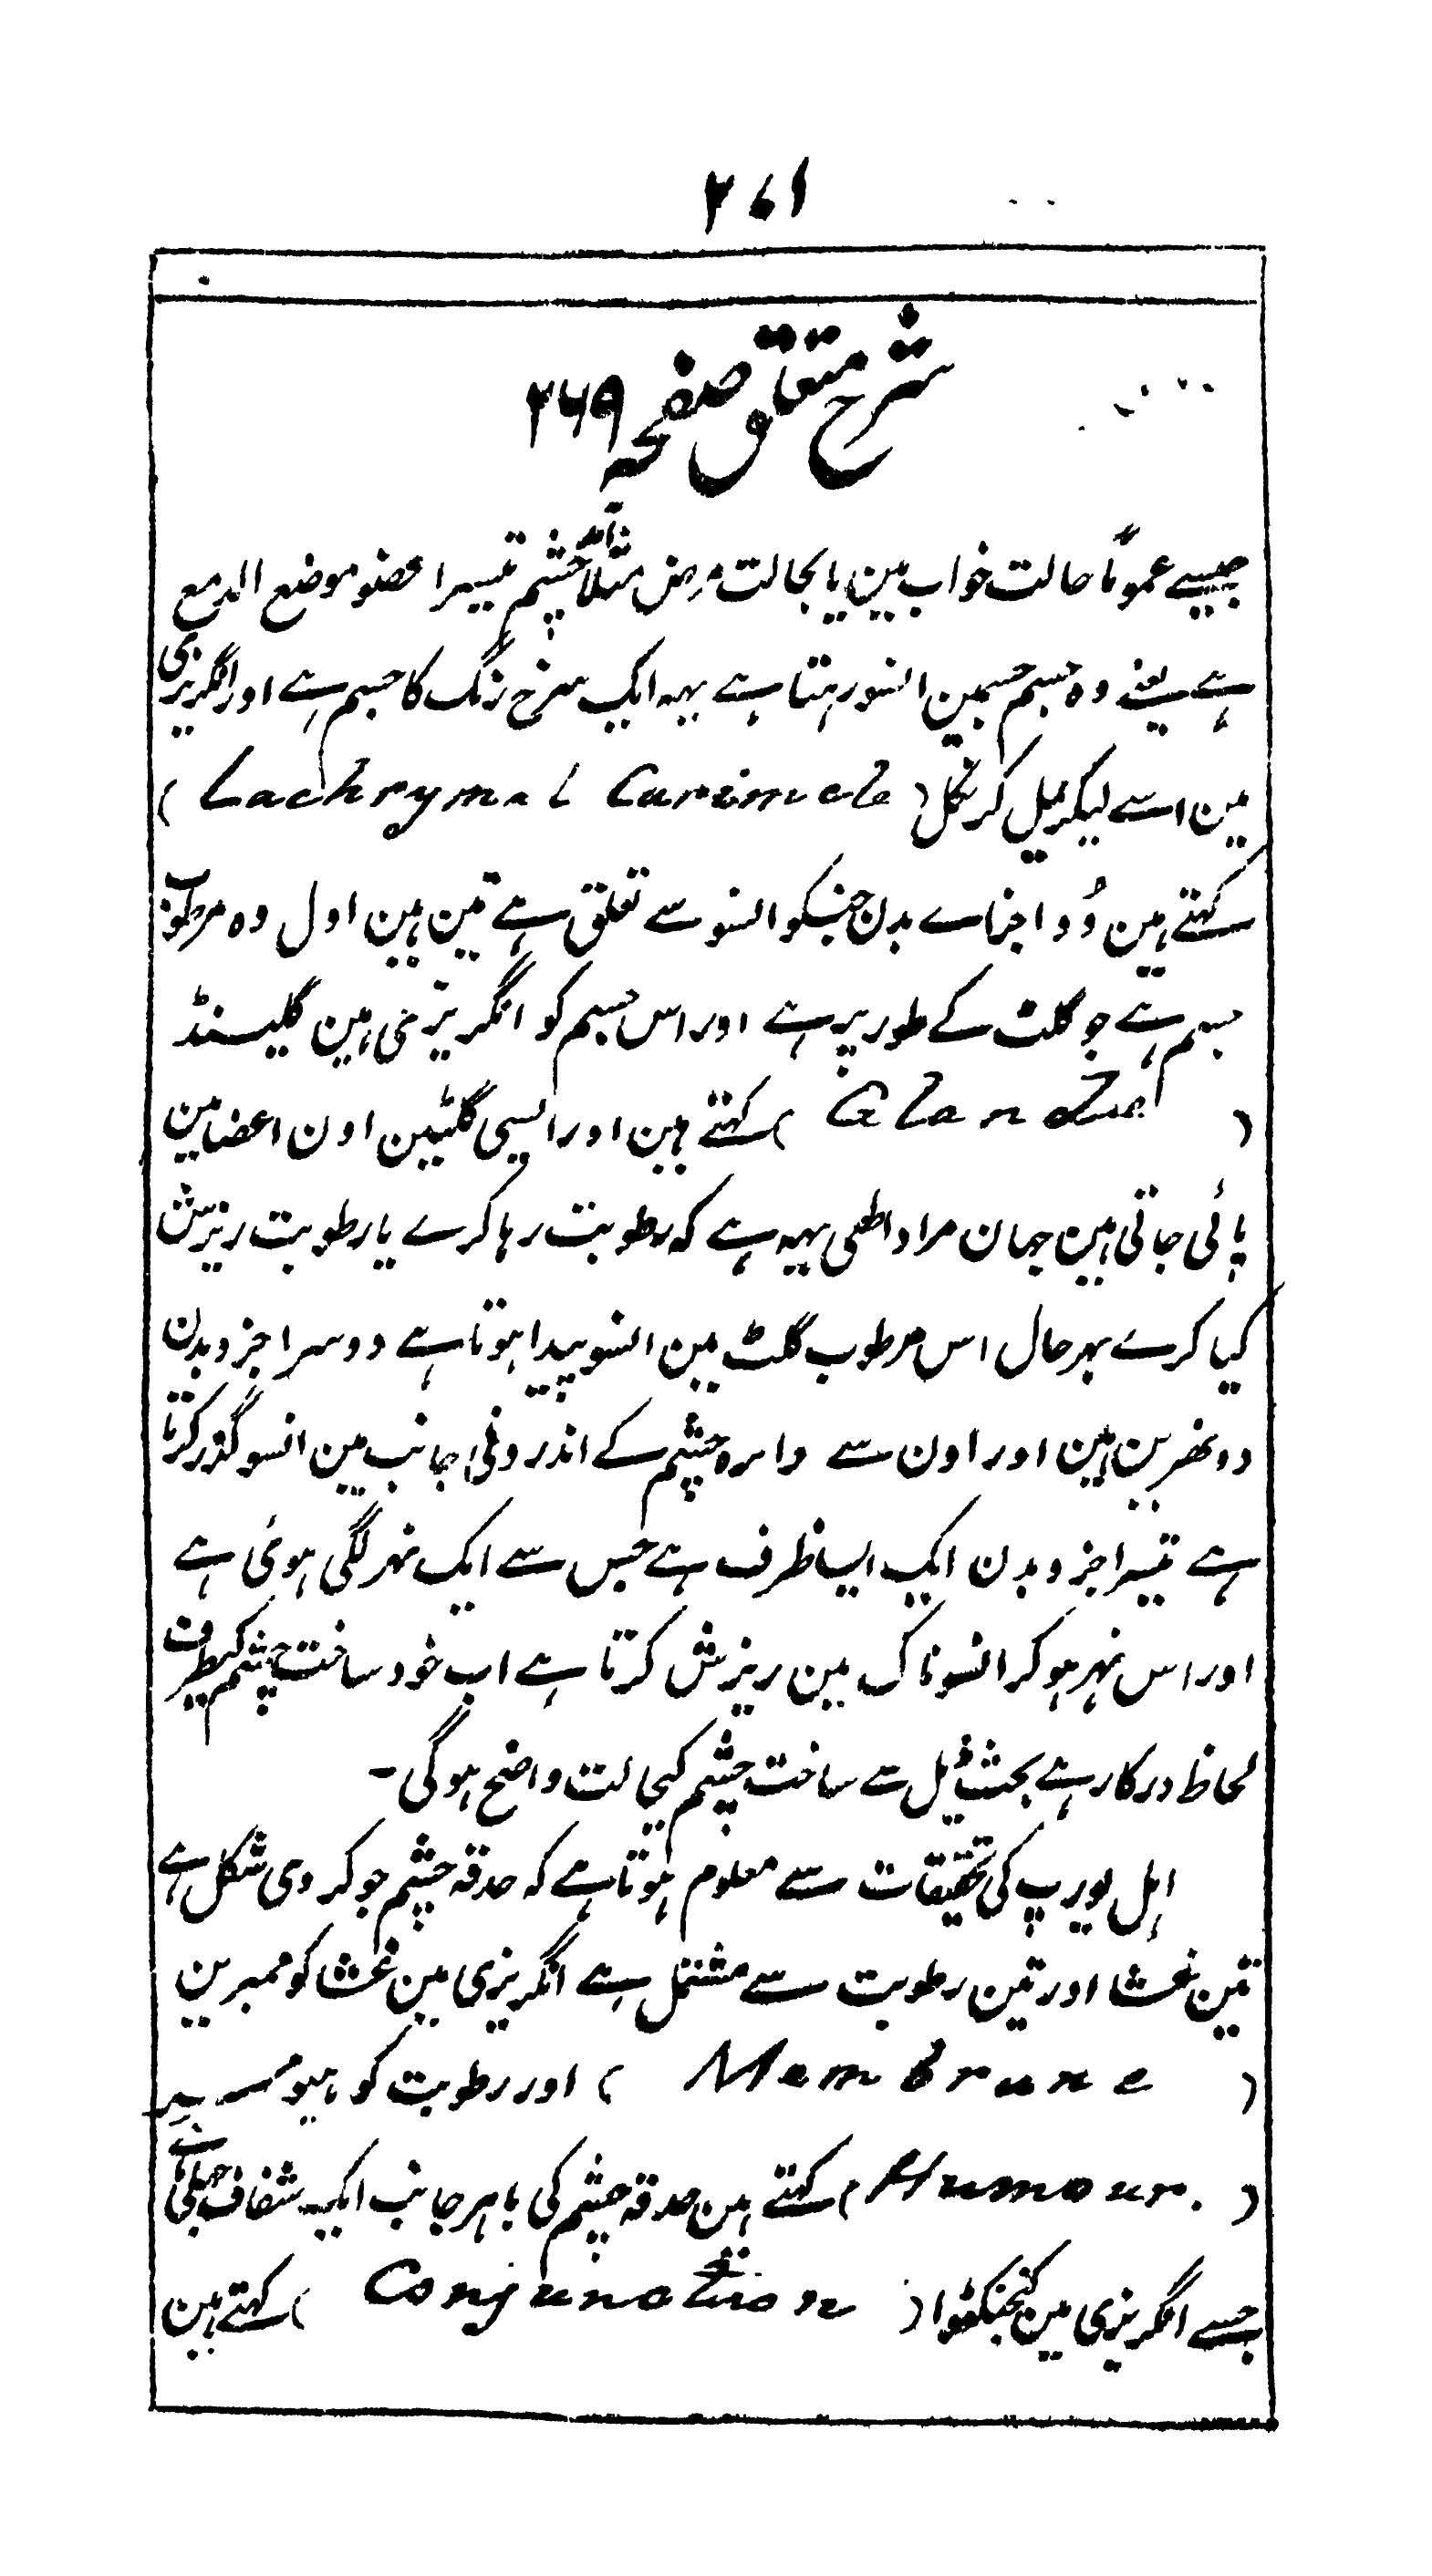 ۲۷۱
شرح متعلق صفحہ ۲۶۹
جیسے عموماً حالت خواب مین یا بحالت مرض مثلاً چشم تیسرا عضو موضع الدمع
ہے یعنے وہ جسم جسمین انسو رہتا ہے یہہ ایک سرخ رنگ کا جسم ہے اور انگریزی
مین اسے لیکریمل کرنکل ( Lachrymal Caruncle )
کہتے ہین وُہ اجزاے بدن جنکو انسو سے تعلق ہے تین ہین اول وہ مرطوب
جسم ہے جو گلٹ کے طور پر ہے اور اس جسم کو انگریزی مین گلینڈ
( Glandue ) کہتے ہین اور ایسی گلٹین اون اعضا مین
پائی جاتی ہین جہان مراد اطہی یہہ ہے کہ رطوبت رہا کرے یا رطوبت ریزش
کیا کرے بہرحال اس مرطوب گلٹ مین انسو پیدا ہوتا ہے دوسرا جزو بدن
دو نہرین ہین اور اون سے دائرہ چشم کے اندرونی جانب مین انسو گذر کرتا
ہے تیسرا جزو بدن ایک ایسا ظرف ہے جس سے ایک نہر لگی ہوئی ہے
اور اس نہر ہو کر انسو ناک مین ریزش کرتا ہے اب خود ساخت چشم کیطرف
لحاظ درکار ہے بحث ذیل سے ساخت چشم کیحالت واضح ہوگی ۔
اہل یورپ کی تحقیقات سے معلوم ہوتا ہے کہ حدقہ چشم جو کروی شکل ہے
تین غشا اور تین رطوبت سے مشتمل ہے انگریزی مین غشا کو ممبرین
( Membrane ) اور رطوبت کو ہیومر
( Humour. ) کہتے ہین حدقہ چشم کی باہر جانب ایک شفاف جھلی ہے
جسے انگریزی مین کنجنکٹوا ( Conjunction ) کہتے ہین